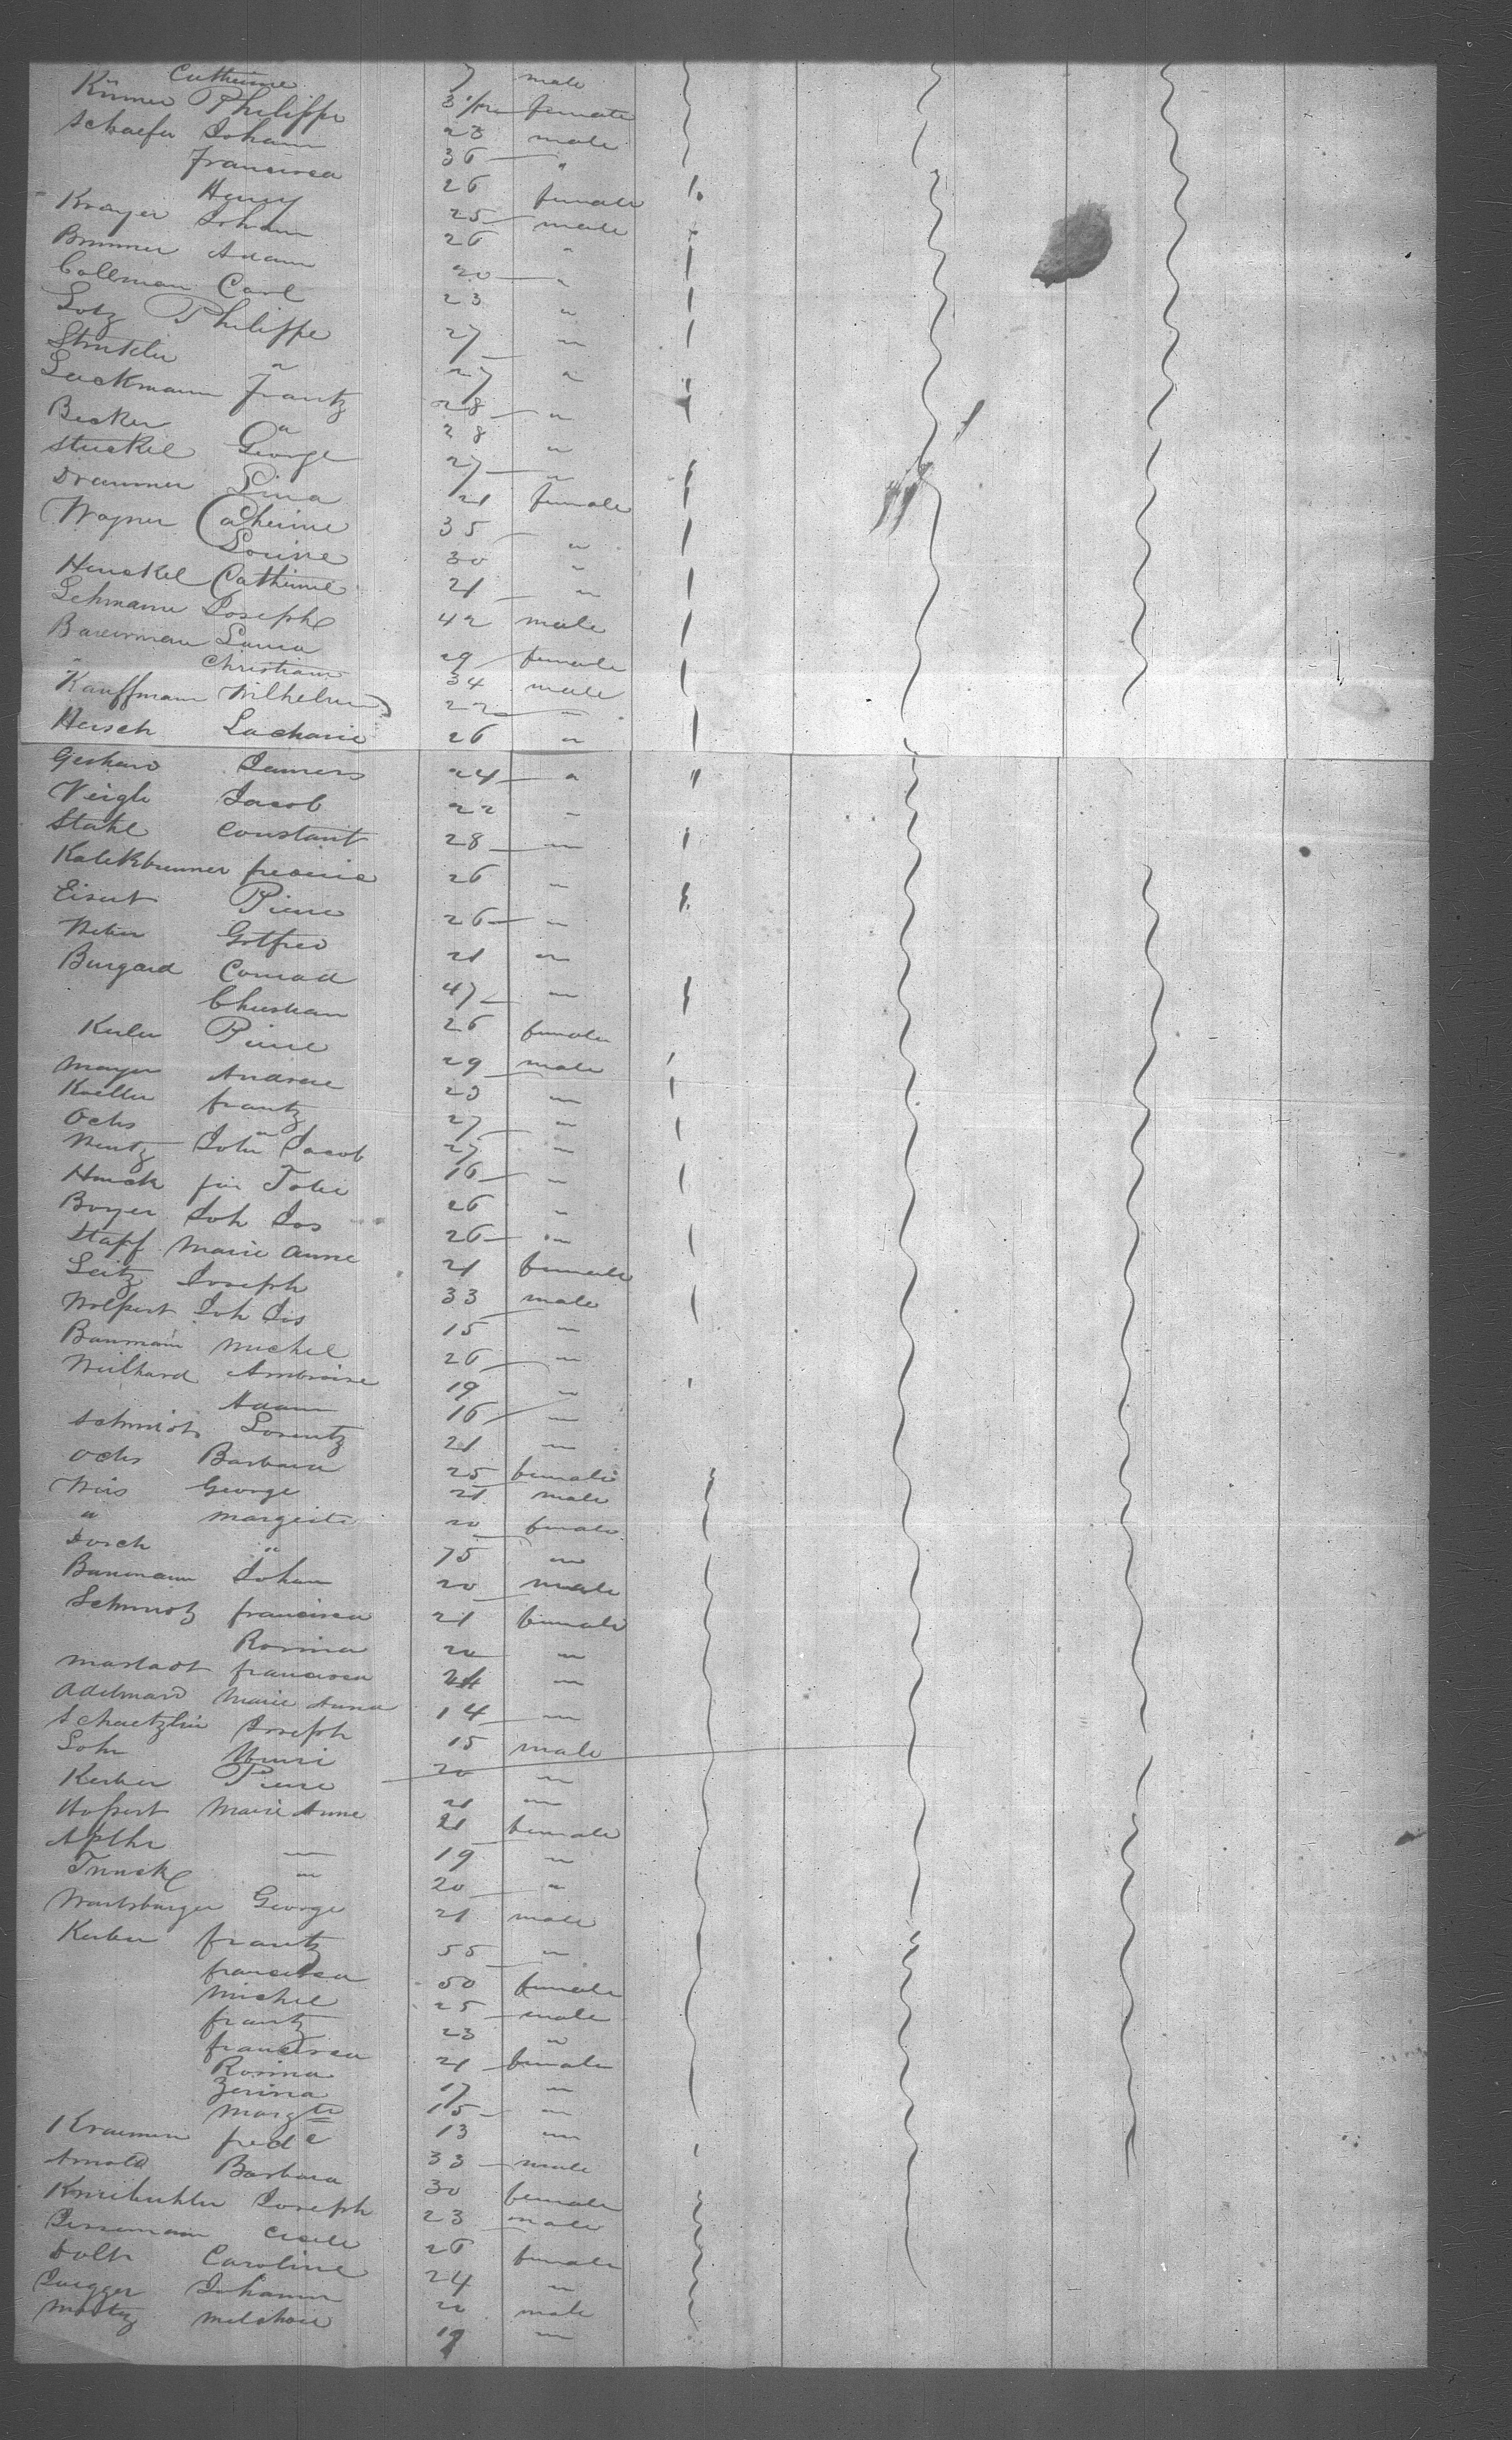 Catherine 7 male
Kinner Philippe 3 1/12 female
Schaefer Johann 23 male
Francisca 36 "
Henry 26 female
Krayer Johann 25 male
Brunner Adam 26 "
Collman Carl 20 "
Lotz Philippe 23 "
" 27 "
Luckmann Frantz 27 "
Becker " 28 "
Stuckel George 28 "
Drammer Lina 27 "
Wagner Catherine 21 female
Louise 35 "
Henckel Catherine 30 "
Lehmann Joseph 21 "
Laura 42 male
" Christian 29 female
Kauffmann Wilhelm 34 male
22 "
Hersch Zacharie 26 "
Gerhard 24 "
Veigle Jacob 22 "
Stahl Constant 28 "
Kalckbrunner frederic 26 "
Eisert Pierre 26 "
Gotfred 21 "
Burgard Conrad 47 "
Christian 26 female
Pierre 29 male
Mayer Andreae 23 "
Koeller frantz 27 "
Ochs " 27 "
Wentz John Jacob 16 "
Huck 26 "
Boyer Joh Jos 26 "
Stapf Marie Anne 21 female
Seitz Joseph 33 male
Wolpert Joh Jos 15 "
Baumann Michel 26 "
Weilhard Ambroise 19 "
Adam 16 "
Schmidt Lorentz 21 "
Ochs Barbara 25 female
Weis George 21 male
" Margerite 20 female
Dosch " 75 "
Baumann Johan 20 male
Schmutz francisca 21 female
Rosina 20 "
Mastadt francisca 24 "
Adelmard Marie Anna 14 "
Schaetzlin Joseph 15 male
Lohr Henri 20 "
Kerber Pierre 21 "
Hofert Marie Anne 21 female
Apthe — 19 "
" 20 "
Wartzburger George 21 male
Kerber frantz 55 "
francisca 50 female
Michel 25 male
frantz 23 "
francisca 21 female
Rosina 17 "
Zerina 15 "
Margte 13 "
Kraemer fredc 33 male
Arnold Barbara 30 female
Joseph 23 male
Cecile 26 female
Dolh Caroline 24 "
Johann 20 male
Melchior 19 "